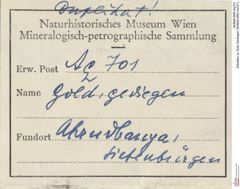 Duplikat!
Naturhistorisches Museum Wien
Mineralogisch-petrographische Sammlung
Erw. Post Ac 701
2
Name Gold, gediegen
Fundort
Siebenbürgen